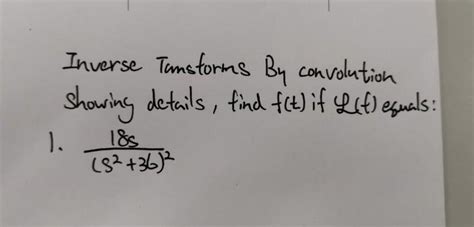 Inverse Tansforms By convolution
Showing details, find f(t) if ℒ(f) equals:
1. 18s / (s² + 36)²